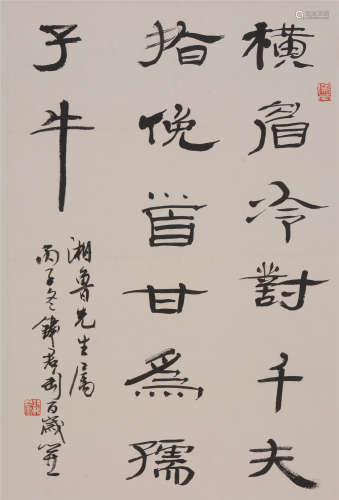 橫眉冷對千夫
指俛首甘為孺
子牛
湘魯先生屬
丙子冬錢君匋百歲